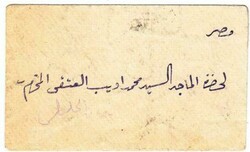 مصر
لحضرة الماجد السيد محمد اديب العتقى المحترم